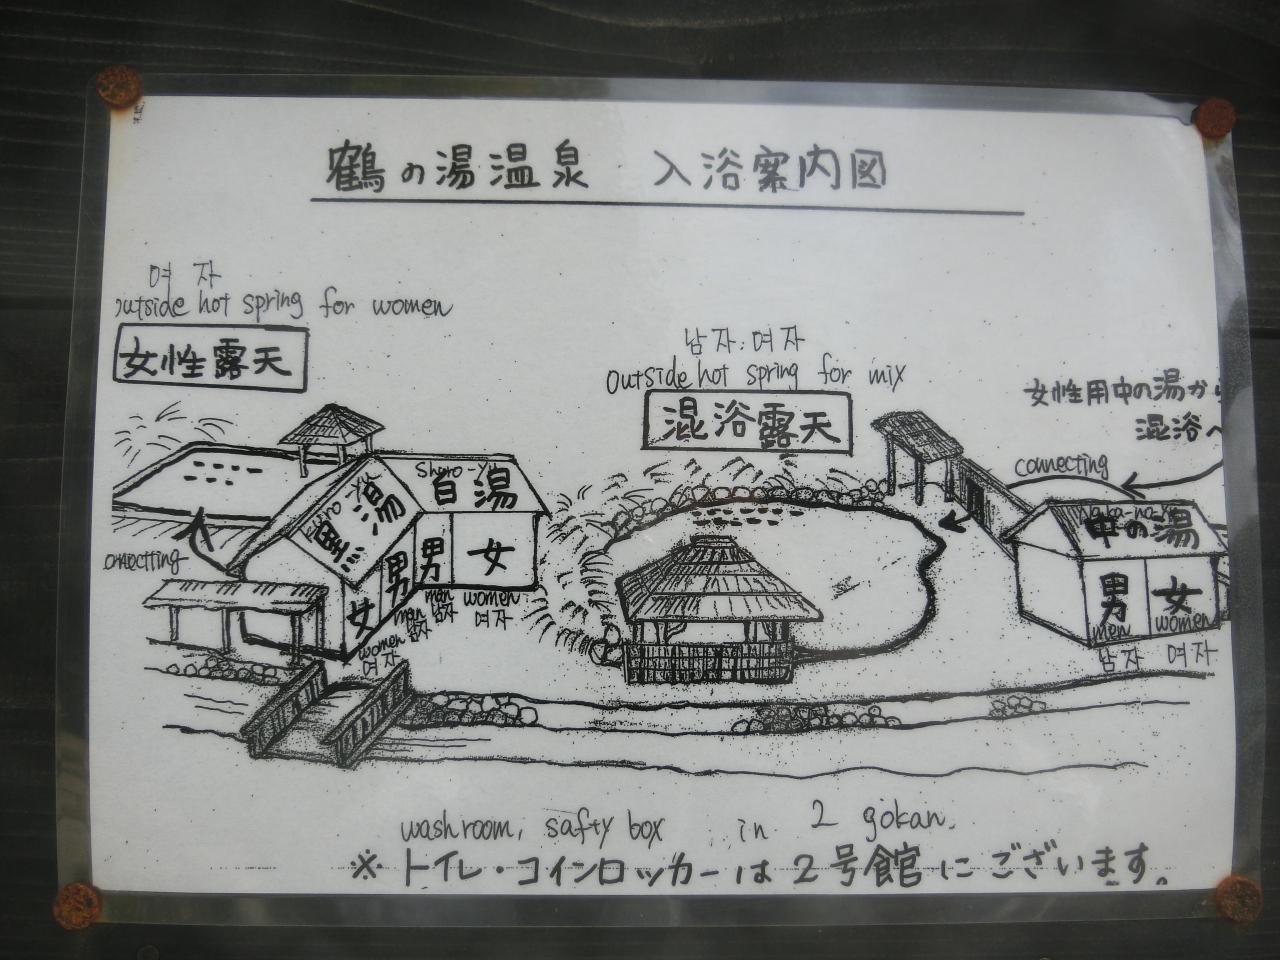 鶴の湯温泉 入浴案内図
여 자
outside hot spring for women
女性露天
남자:여자
outside hot spring for mix
混浴露天
女性用中の湯から
混浴へ
connecting
Shiro-yu
白湯
Kuro-yu
黒湯
Na-ka-no-yu
中の湯
connectting
女
男
男
女
women
여자
man
남자
man
남자
women
여자
男
女
men
women
남자
여자
washroom, safty box in 2 gokan.
※ トイレ・コインロッカーは2号館にございます。